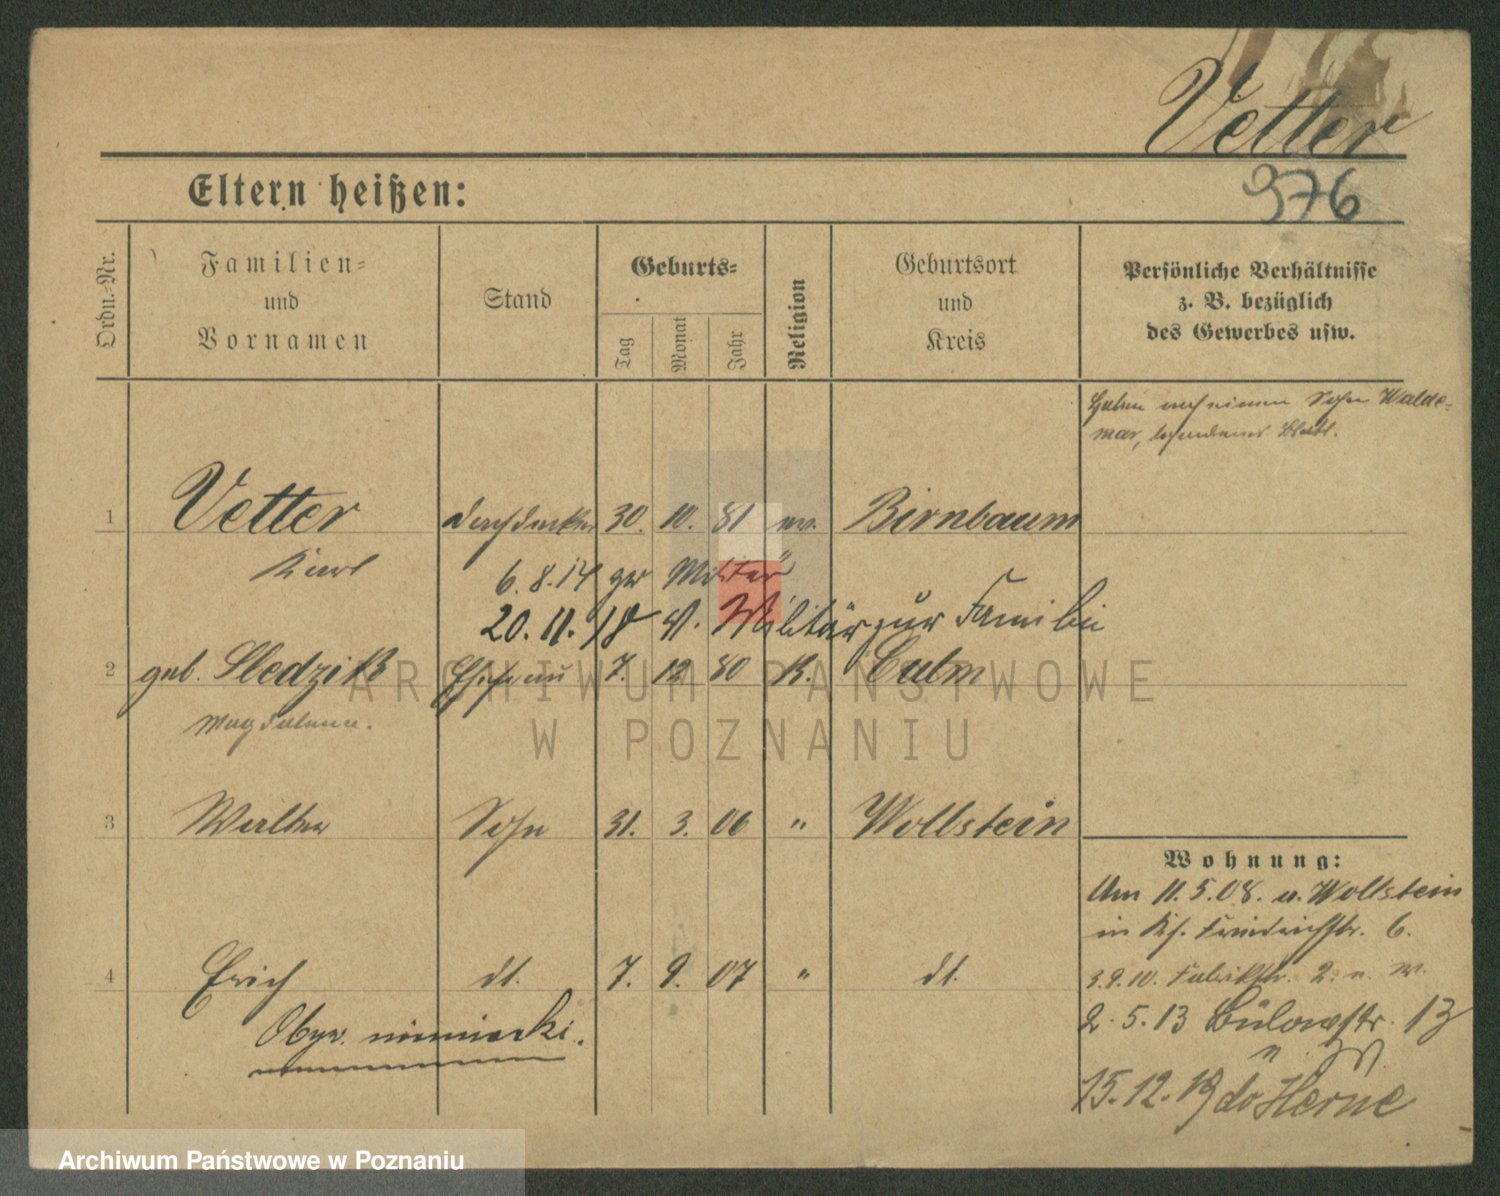 Vetter
976
Eltern heißen:
Ordn.-Nr.
Familien-
und
Vornamen
Stand
Geburts-
Tag
Monat
Jahr
Religion
Geburtsort
und
Kreis
Persönliche Verhältnisse
z. B. bezüglich
des Gewerbes usw.
Haben noch einen Sohn Walde-
mar, besonderes Blatt.
1 Vetter Dachdecker 30. 10. 81 ev. Birnbaum
Karl
6.8.14 zur Militär
20. 11. 18 v. Militär zur Familie
2 geb. Sledzik Ehefrau 7. 12 80 k. Culm
Magdalena.
3 Walter Sohn 31. 3. 06 " Wollstein
Wohnung:
Am 11.5.08. v. Wollstein
in Friedrichstr. 6.
4 Erich dt. 7. 9. 07 " dt.
3.9.10. Fabrikstr. 2.
Obyw. niemiecki.
2.5.13 Bülowstr. 13
15.12.19 do Herne
ARCHIWUM PAŃSTWOWE
W POZNANIU
Archiwum Państwowe w Poznaniu